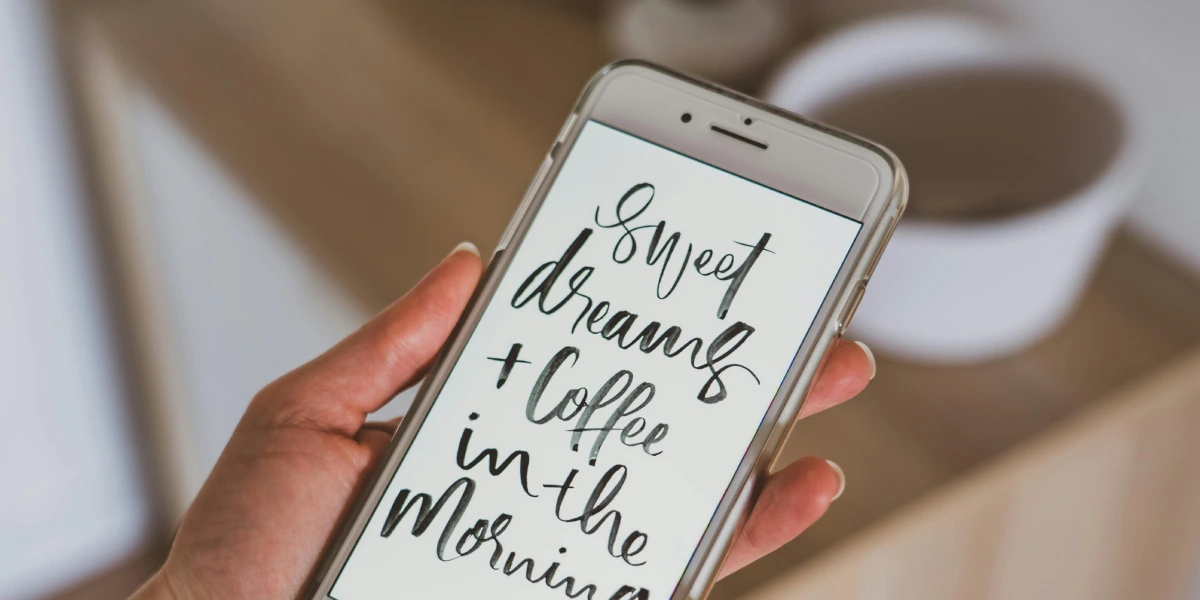 sweet
dreams
+ Coffee
in the
Morning